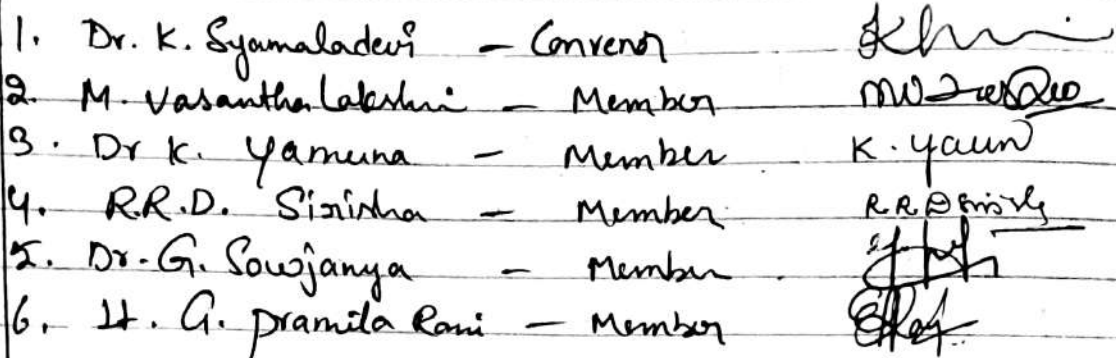 1. Dr. K. Syamaladevi - Convenor
2. M. Vasantha Lakshmi - Member
3. Dr K. Yamuna - Member K. Yamun
4. R.R.D. Sirisha - Member R R D Sirisha
5. Dr. G. Sowjanya - Member
6. Lt. G. Pramila Rani - Member